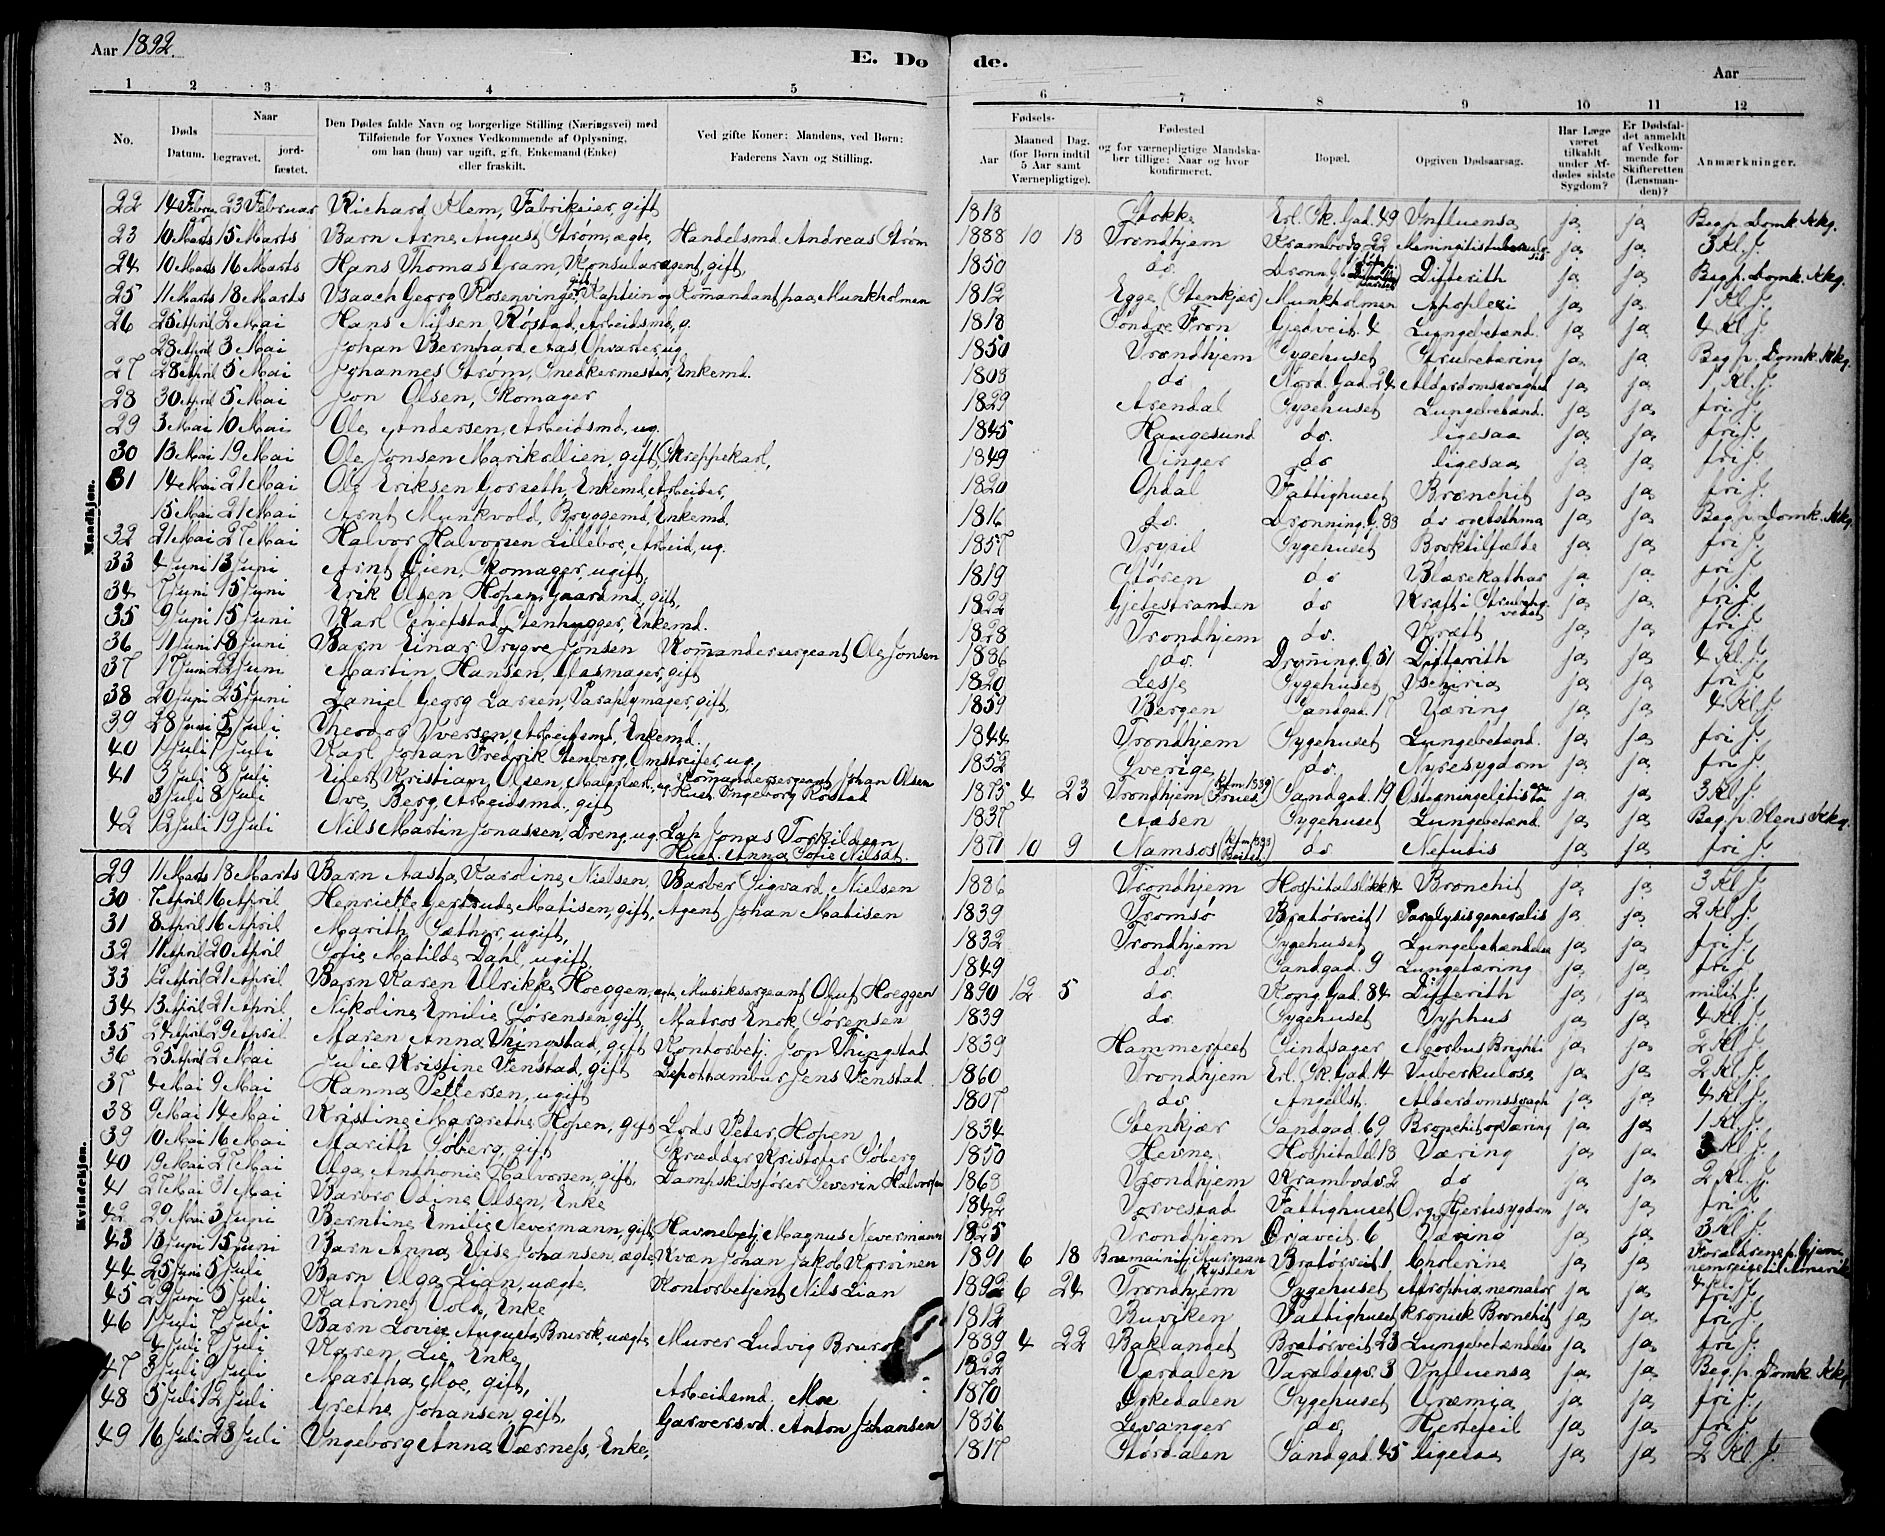 Aar 1892.
E. Døde.
Aar
1 2 3 4 5 6 7 8 9 10 11 12
No.
Døds Datum.
Naar
begravet.
jordfæstet.
Den Dødes fulde Navn og borgerlige Stilling (Næringsvei) med
Tilføiende for Voxnes Vedkommende af Oplysning,
om han (hun) var ugift, gift, Enkemand (Enke)
eller fraskilt.
Ved gifte Koner: Mandens, ved Børn:
Faderens Navn og Stilling.
Fødsels-
Aar
Maaned Dag.
(for Børn indtil
5 Aar samt
Værnepligtige).
Fødested
og for værnepligtige Mandskaber tillige: Naar og hvor
konfirmeret.
Bopæl.
Opgiven Dødsaarsag.
Har Læge
været
tilkaldt
under Afdødes sidste
Sygdom?
Er Dødsfaldet anmeldt
af Vedkommende for
Skifteretten
(Lensmanden)?
Anmærkninger.
Mandkjøn.
22 14 Febru 23 Februar Richard Klem, Fabrikeier, gift 1818 Stokke Erl. Sk. Gad. 49 Influensa ja ja Begr. p. Domk. Kkg.
23 10 Marts 15 Marts Barn Arne August Strøm, ægte, Handelsmd. Andreas Strøm 1888 10 18 Trondhjem Krambodg. 22 Meningitis ja ja 3 Kl. J.
24 10 Marts 16 Marts Hans Thomas Gram, Konsularagent, gift, 1850 do. Difterith ja ja Beg. p. Domk. Kkg.
25 11 Marts 18 Marts Isaach Georg Rosenvinge, gift, Kaptein og Kommandant paa Munkholmen 1812 Egge (Stenkjær) Munkholmen Apoplexi ja ja 1 Kl. J.
26 25 April 2 Mai Hans Nilsen Røstad, Arbeidsmd, g. 1818 Søndre Fron Gjedveit. 4 Lungebetænd. ja ja 4 Kl. J.
28 April 3 Mai Johan Bernhard Aas, Opvarter, ug. 1850 Trondhjem Sygehuset Strubetæring ja ja Beg. p. Domk. Kkg.
27 28 April 5 Mai Johannes Strøm, Snedkermester, Enkemd. 1808 do Nord. Gad. 24 Alderdomssvaghed ja ja 1 Kl. J.
28 30 April 5 Mai Jon Olsen, Skomager 1829 Arendal Sygehuset Lungebetænd. ja ja fri J.
29 3 Mai 10 Mai Ole Andersen, Arbeidsmd, ug. 1845 Haugesund do. ligesaa ja ja fri J.
30 13 Mai 19 Mai Ole Jonsen Marikollien, gift, Skreppekarl, 1849 Vinger do ligesaa ja ja fri J.
31 14 Mai 21 Mai Ole Eriksen Gorseth, Enkemd, Arbeider, 1820 Opdal Fattighuset Bronchit ja ja fri J.
15 Mai 21 Mai Arnt Munkvold, Bryggemd, Enkemd. 1816 do. Dronning. G. 33 do og Asthma ja ja Beg. p. Domk. Kkg.
32 21 Mai 27 Mai Halvor Halvorsen Lilleboe, Arbeid, ug. 1857 Trysil Sygehuset Broktilfælde ja ja fri J.
33 4 Juni 13 Juni Arnt Lien, Skomager, ugift, 1819 Støren do Blærekathar ja ja fri J.
34 7 Juni 15 Juni Erik Olsen Hopen, Gaardmd, gift, 1822 Gjetestranden do Kræft i ja ja fri J.
35 9 Juni 15 Juni Karl Schifstad, Stenhugger, Enkemd. 1828 Trondhjem do. Kræft ja ja fri J.
36 11 Juni 18 Juni Barn Einar Trygve Jonsen Kommandersergeant Ole Jonsen 1886 do. Dronning. G. 51 Difterith ja ja 4 Kl. J.
37 17 Juni 22 Juni Martin Hansen, Glasmager, gift 1820 Lesje Sygehuset Ischiria ja ja fri J.
38 20 Juni 25 Juni Daniel Georg Larsen, Paraplymager, gift, 1859 Bergen Sandgad. 17 Tæring ja ja 4 Kl. J.
39 28 Juni 5 Juli Theodor Iversen, Arbeidsmd, Enkemd. 1844 Trondhjem Sygehuset Lungebetænd. ja ja fri J.
40 1 Juli 7 Juli Karl Johan Fredrik Stenberg, Omstreifer, ug. 1852 Sverige do. Nyresygdom ja ja fri J.
41 3 Juli 8 Juli Edert Kristian Olsen, Malerlærl., ug. Kommandersergeant Johan Olsen Hust. Ingeborg Røstad 1875 4 23 Trondhjem Sandgad. 19 ja ja 3 Kl. J.
3 Juli 8 Juli Ove Berg, Arbeidsmd. gift 1837 Aasen Sygehuset Lungebetænd. ja ja Beg. p. Stens Kkg.
42 12 Juli 19 Juli Nils Martin Jonassen, Dreng, ug. Lap Jonas Torkildsen Hust. Anna Sofie Nilsdt. 1877 10 9 Namsos do. Nefritis ja ja fri J.
Kvindekjøn.
29 11 Marts 18 Marts Barn Aasta Karoline Nielsen, Barber Sigvard Nielsen 1886 Trondhjem Hospitalsløkk 14 Bronchit ja ja 3 Kl. J.
30 7 April 16 April Henriette Gertrude Matisen, gift, Agent Johan Matisen 1839 Tromsø Bratørveit 1 Paralysis generalis ja ja 2 Kl. J.
31 8 April 16 April Marith Sæther, ugift, 1832 Trondhjem Sygehuset Lungebetændelse ja ja fri J.
32 11 April 20 April Sofie Matilde Dahl, ugift 1849 do. Sandgad. 9 Lungetæring ja ja fri J.
33 12 April 21 April Barn Karen Ulrikke Hoeggen, ægte, Musiksergeant Oluf Hoeggen 1890 12 5 do. Kong. Gad. 84 Difterith ja ja milit J.
34 13 April 21 April Nikoline Emilie Sørensen, gift, Matros Enok Sørensen 1839 do. Sygehuset Typhus ja ja 4 Kl. J.
35 24 April 29 April Maren Anna Thingstad, gift Kontorbetj. Jon Thingstad 1839 Hammerfest Sindsager Morbus Brighti ja ja 2 Kl. J.
36 25 April 2 Mai Julie Kristine Venstad, gift Depottambur Jens Venstad 1860 Trondhjem Erl. Sk. Gad. 14 Tuberkulose ja ja 2 Kl. J.
37 4 Mai 9 Mai Hanna Pettersen, ugift 1807 do. Angellst. Alderdomssvagh ja ja 4 Kl. J.
38 9 Mai 14 Mai Kristine Margrethe Hopen, gift Lods Peter Hopen 1834 Stenkjær Sandgad. 69 Bronchit og Tæring ja ja 1 Kl. J.
39 10 Mai 16 Mai Marith Soberg, gift Skrædder Kristofer Soberg 1850 Hevne Hospitald. 18 Tæring ja ja 3 Kl. J.
40 19 Mai 27 Mai Olga Anthonie Halvorsen, gift, Dampskibsfører Severin Halvorsen 1863 Trondhjem Krambods. 2 do ja ja 2 Kl. J.
41 27 Mai 31 Mai Barbro Odine Olsen, Enke 1842 Torvestad Fattighuset Org. Hjertesygdom ja ja fri J.
42 29 Mai 3 Juni Berntine Emilie Nevermann, gift, Havnebetj. Magnus Nevermann 1825 Trondhjem Ørjaveit. 6 Tæring ja ja 3 Kl. J.
43 13 Juni 15 Juni Barn Anna Elise Johansen, ægte, Kvæn Johan Jakob Korvinen 1891 6 18 Bratørveit 1, Cholerine ja ja Forældrene p. Gjennemreise til Amerik 4 Kl. J.
44 25 Juni 5 Juli Barn Olga Lian, uægte, Kontorbetjent Nils Lian 1892 6 24 Trondhjem Sygehuset Atrophia neonator ja ja fri J.
45 29 Juni 5 Juli Katrine Vold, Enke 1812 Buviken Fattighuset kronisk Bronchit ja ja fri J.
46 1 Juli 7 Juli Barn Lovise Augusta Brurok, uægte, Murer Ludvig Brurok 1889 4 22 Baklandet Bratørveit 23 Lungebetændels ja ja fri J.
4 Juli 7 Juli Karen Lie, Enke 1822 Værdalen 3 Influensa ja ja Beg. p. Domk. Kkg
47 3 Juli 9 Juli Martha Moe, gift, Arbeidsmd. Moe 1870 Orkedalen Sygehuset Uræmia ja ja fri J.
48 5 Juli 12 Juli Grethe Johansen, gift, Garversvd. Anton Johansen 1856 Levanger do. Hertefeil ja ja fri J.
49 16 Juli 23 Juli Ingeborg Anna Værnes, Enke, 1817 Størdalen Sandgad. 45 ligesaa ja ja 2 Kl. J.